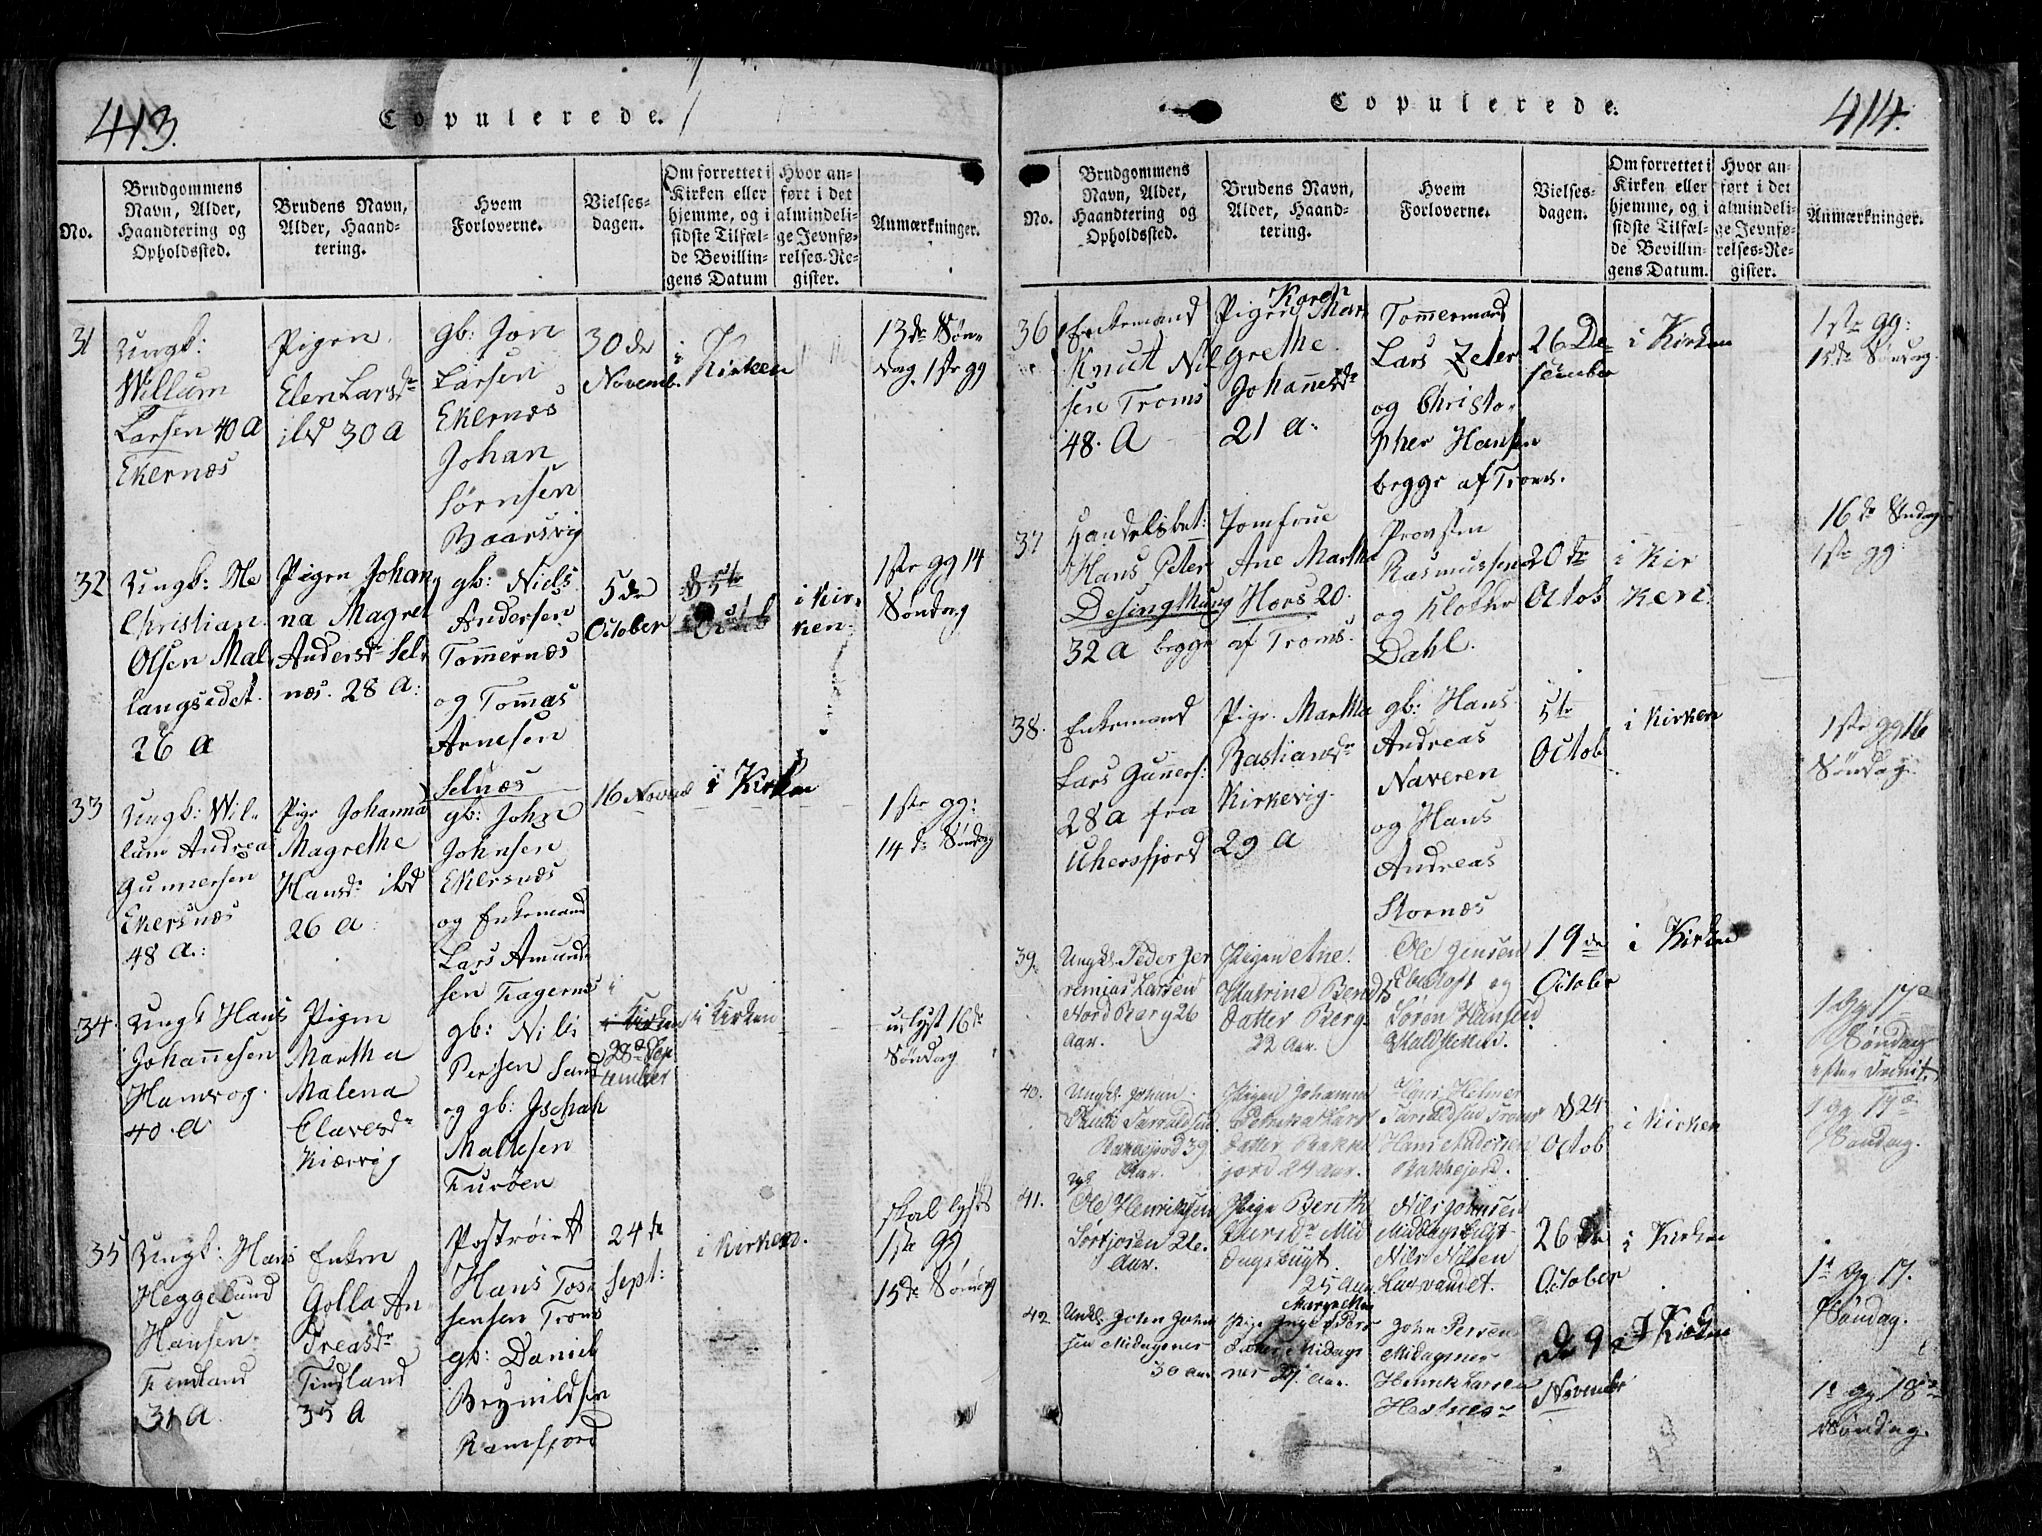 413.
Copulerede.
No.
Brudgommens
Navn, Alder,
Haandtering og
Opholdssted.
Brudens Navn,
Alder, Haand-
tering.
Hvem
Forloverne.
Vielses-
dagen.
Om forrettet i
Kirken eller
hjemme, og i
sidste Tilfæl-
de Bevillin-
gens Datum
Hvor an-
ført i det
almindeli-
ge Jevnfø-
relses-Re-
gister.
Anmærkninger.
31
Ungk:
Willum
Larsen 40 A
Ekernæs
Pigen
Elen Larsdr
ibd 30 A
gb: Jon
Larsen
Ekernæs
Johan
Sørnsen
Baarsvig
30de
Novemb.
i Kirken
13de Søn-
dag 1ste gg
32
Ungk:
Christian
Olsen Mal
langseidet.
26 A
Pigen Johan
na Magret
Andersdr Sel
næs. 28 A:
gb: Niels
Andersen
Tommernæs
og Tommas
Arnesen
Selnæs
5de
October
i Kir-
ken.
1ste gg 14
Søndag
33
Ungk: Wil-
lum Andrea
Gunnersen
Ekersnæs
48 A.:
Pige Johanna
Magrethe
Hansdr ibd
26 A
gb: Johne
Johnsen
Ekersnæs
og Enkemand
Lars Amund
sen Fagernæs
16 Novem
i Kirken
1ste gg:
14de Søndag
34.
Ungk Hans
Johannesen
Hamvog.
40. A
Pigen
Martha
Malena
Clavesdr
Kiærvig
gb: Nils
Persen Sand
og gb: Jschah
Mathesen
Furøen
i Kirken
28de Sep
tember
i Kirken
uglyst 16de
Søndag
35
Ungk: Hans
Heggelund
Hansen
Tindland
31 A
Enken
Golla An
dreasdr
Tindland
35 A
Postrøiet
Hans Tos
sensen Troms
gb: Daniel
Brynildsen
Ramfjord
24de
Sept:
i Kirken.
skal lyses
1ste gg
15de Søndag
414.
Copulerede.
No.
Brudgommens
Navn, Alder,
Haandtering og
Opholdssted.
Brudens Navn,
Alder, Haand-
tering.
Hvem
Forloverne.
Vielses-
dagen.
Om forrettet i
Kirken eller
hjemme, og i
sidste Tilfæl-
de Bevillin-
gens Datum.
Hvor an-
ført i det
almindeli-
ge Jevnfø-
relses-Re-
gister.
Anmærkninger.
36
Enkemand
Knut Nil
sen Troms
48. A
Karen
Pigen Mar
Grethe
Johannesdr
21 A:
Tømmermand
Lars Zeter
og Christo-
pher Hansen
begge af Troms.
26 De-
sember
i Kirken
1ste gg:
15de Søndag
37
Handelsbet:
Hans Peter
Desingthung
32 A begge
Jomfrue
Ane Martha
Hors 20.
af Troms.
Provsten
Rasmussen
og Klokker
Dahl.
20de
Octob
i Kir
ken
16de Søndag
1ste gg:
38.
Enkemand
Lars Gunners:
28 A fra
Uhersfjord
Pige Martha
Bastiansdr
Kirkevig.
29 A
gb: Hans
Andreas
Naveren
og Hans
Andreas
Stornæs
5te
Octob
i Kirken
1ste gg 16
Søndag
39.
Ungk. Peder Jer
remias Larsen
Nord Berg 26
Aar.
Pigen Ane
Katrine Bendts
datter Berg
22 Aar.
Ole Jensen
Ebeltoft og
Søren Hansen
19de
October
i Kirken
1 Gg 17de
Søndag
efter Trenit.
40.
Ungk. Johan
Bakkejord 39
Aar.
Pigen Johanna
datter Bakke
jord 24 Aar.
Hans Helmer
Hans Andersen
Bakkejord.
d 24
Octob
i Kirken
1 Gg 17de
Søndag.
41.
Ole Henriksen
Sørfjoren 21.
Aar.
Pige Berith
Mid
dagsbugt.
25 Aar.
Nils Johnsen
Middagsbugt
Nils Nilsen
Katvandet.
26de
October
i Kirken
1te Gg 17.
Søndag.
42
Ungk. John John
sen Midagsnes
30 aar
Pige Inger Pers
datter Midags
nes 27 Aar.
John Persen
Midagsnes
Henrik Larsen
De 9
November
i Kirken
1te Gg 18de
Søndag.